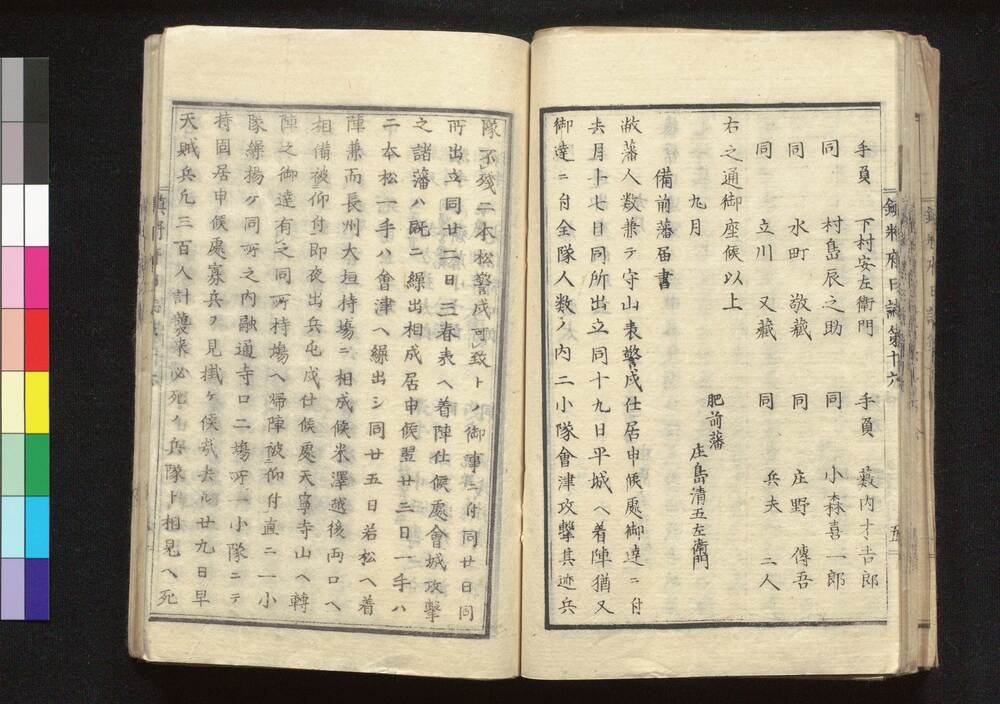 鎮将府日誌第十六
五
手負 下村安左衛門 手負 薮内才吉郎
同 村島辰之助 同 小森喜一郎
同 水町敬藏 同 庄野傳吾
同 立川又藏 同 兵夫二人
右之通御座候以上
九月 肥前藩
庄島清五左衛門
備前藩届書
敝藩人数兼テ守山表警戍仕居申候處御達ニ付
去月十七日同所出立同十九日平城ヘ着陣猶又
御達ニ付全隊人数ノ内二小隊會津攻撃其迹兵
隊不殘二本松警戍可致トノ御事ニ付同廿日同
所出立同廿二日三春表ヘ着陣仕候處會城攻撃
之諸藩ハ既ニ繰出相成居申候翌廿三日一手ハ
二本松一手ハ會津ヘ繰出シ同廿五日若松ヘ着
陣兼而長州大垣持塲ニ相成候米澤越後両口ヘ
相備被仰付即夜出兵屯戍仕候處天寧寺山ヘ轉
陣之御達有之同所持塲ヘ帰陣被仰付直ニ一小
隊繰揚ケ同所之内融通寺口二塲所一小隊ニテ
持固居申候處寡兵ヲ見掛ケ候哉去ル廿九日早
天賊兵凡三百人計襲来必死ノ兵隊ト相見ヘ死